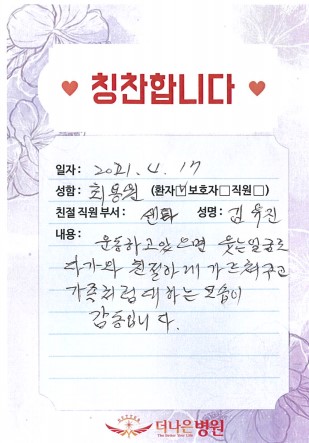 칭찬합니다
일자 : 2021. 4. 17
성함 : 최용원 (환자☑보호자□직원□)
친절 직원 부서 : 센터 성명 : 김유진
내용 : 운동하고 있으면 웃는 얼굴로
다가와 친절하게 가르쳐주고
가족처럼 대하는 모습이
감동입니다.
더나은병원
The Better Your Life